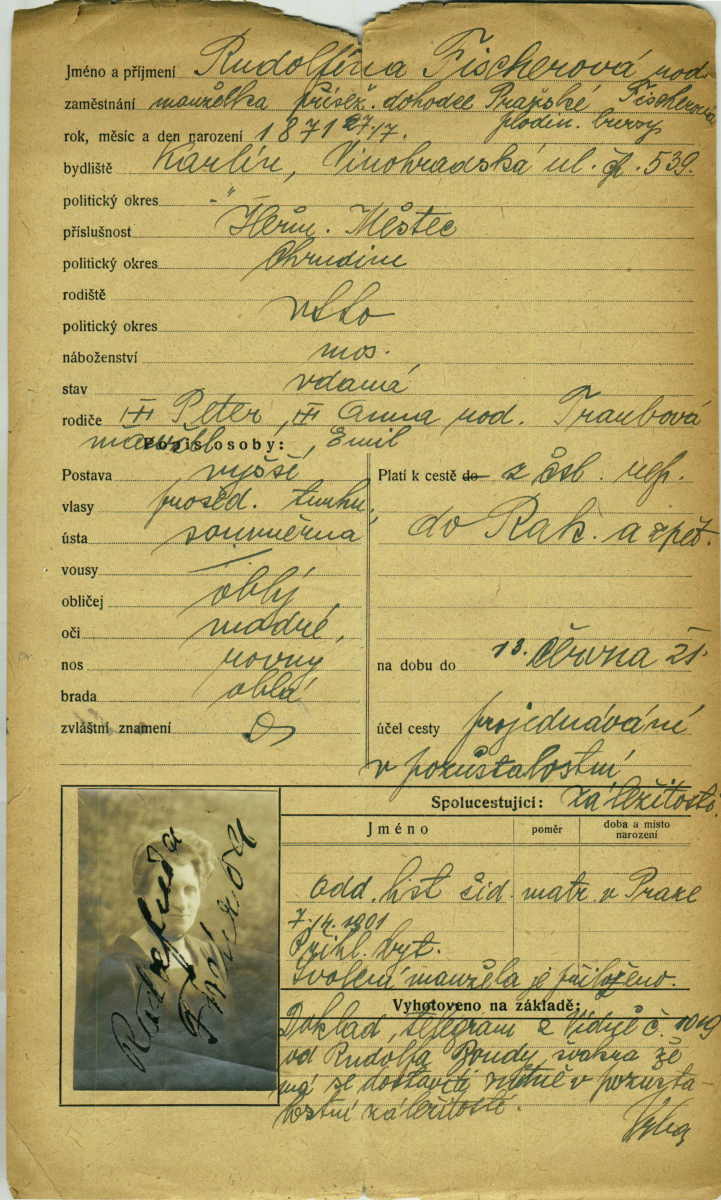 Jméno a příjmení Rudolfina Fischerová rod.
zaměstnání manželka přísež. dohodce Pražské Fischerová
plodin. bursy
rok, měsíc a den narození 1871 27./7.
bydliště Karlín, Vinohradská ul. čp. 539.
politický okres -"-
příslušnost Heřm. Městec
politický okres Chrudim
rodiště
politický okres
náboženství mos.
stav vdaná
rodiče Peter, Anna rod. Traubová
manžel Emil
Popis osoby:
Postava vyšší
vlasy prošed. tmavé,
ústa souměrná
vousy —
obličej oblý
oči modré,
nos rovný
brada oblá
zvláštní znamení
Platí k cestě do z čsl. rep.
do Rak. a zpět.
na dobu do 13. června 21.
účel cesty projednávání
v pozůstalostní
záležitosti.
Spolucestující:
Jméno
poměr
doba a místo
narození
Odd. list žid. matr. v Praze
7. 1901
Přihl. byt.
Svolení manžela je přiloženo.
Vyhotoveno na základě:
Doklad, telegram z Vídně č.
od Rudolfa Bondy, švakra že
má se dostaviti v pozusta-
lostní záležitosti.